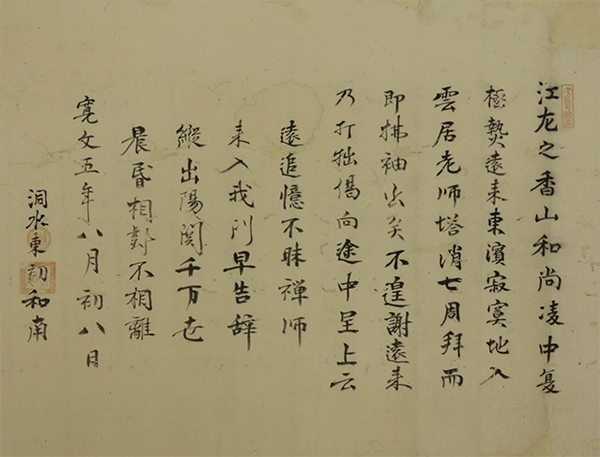 江左之香山和尚凌中夏
極熱遠来東濱寂寞地入
雲居老師塔消七周拜而
即拂袖出矣不遑謝遠来
乃打拙偈向途中呈上云
遠追憶不昧禅師
来入我門早告辞
縱出陽関千万去
晨昏相對不相離
寛文五年八月初八日
洞水東初和南